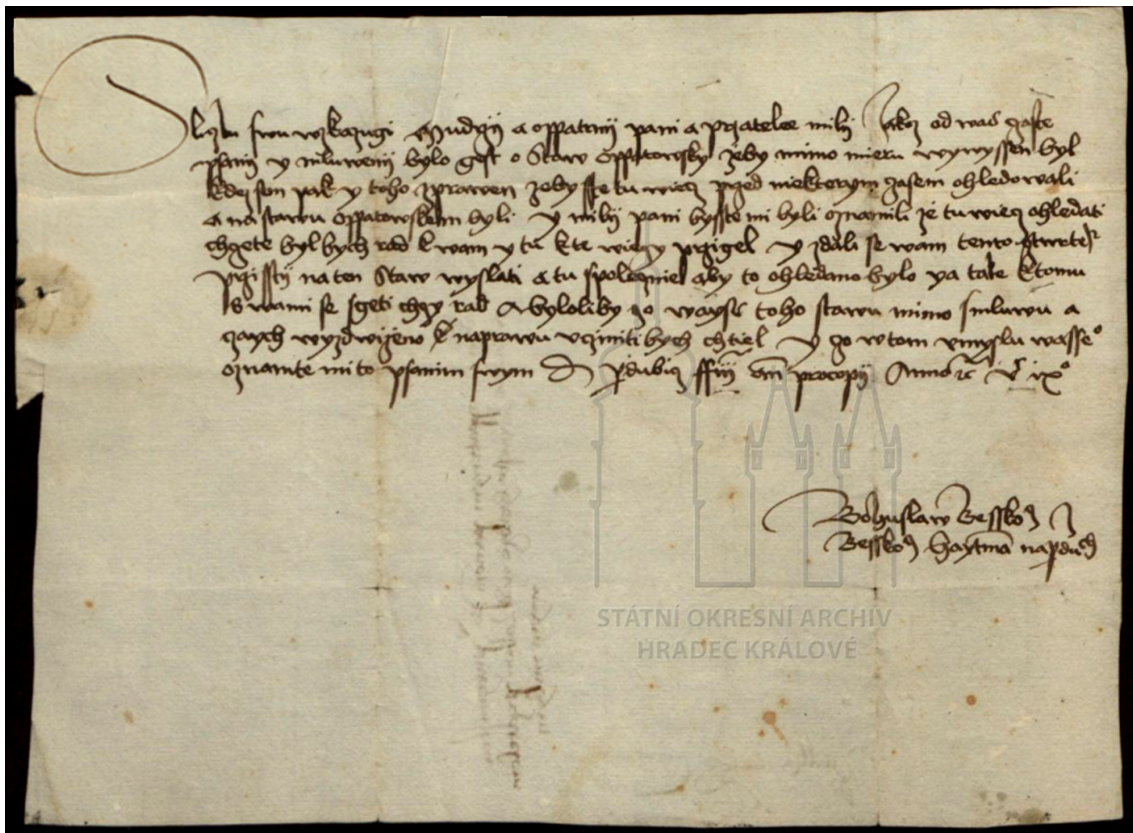 Sluzbu swu wzkazugi Mudrzij a oppatrnij pani a przatelee milij Jakoz od was czaste
psanij y mluwenij bylo gest o Staw Oppatowsky zeby mimo mieru wywyssen byl
Kdez sem pak y toho zprawen zeby sste tu wiecz przed niekterym czasem ohledowali
a na stawu oppatowskem byli y milij pani bysste mi byli oznamili ze tu wiecz ohledati
chczete byl bych rad k wam y tu k te wieczy przigel y zdali se wam tento cztwrtek
przisstij na ten Staw wyslati a tu spolecznie aby to ohledano bylo ya take k tomu
s wami se sgeti chczy rad A byloliby czo wayss toho stawu mimo smluwu a
czaych wyzdwizeno k naprawu vcziniti bych chtiel y czo w tom vmyslu wasseo
oznamte mi to psanim swym D pdubicz ff iij an procopij Anno rc vc ix o
Bohuslaw Besskow z
Besskow haytman na pdubi
STÁTNÍ OKRESNÍ ARCHIV
HRADEC KRÁLOVÉ